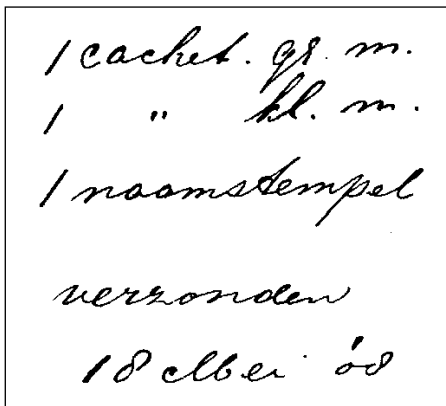 1 cachet. gr. m.
1 " kl. m.
1 naamstempel
verzonden
18 Mei '08